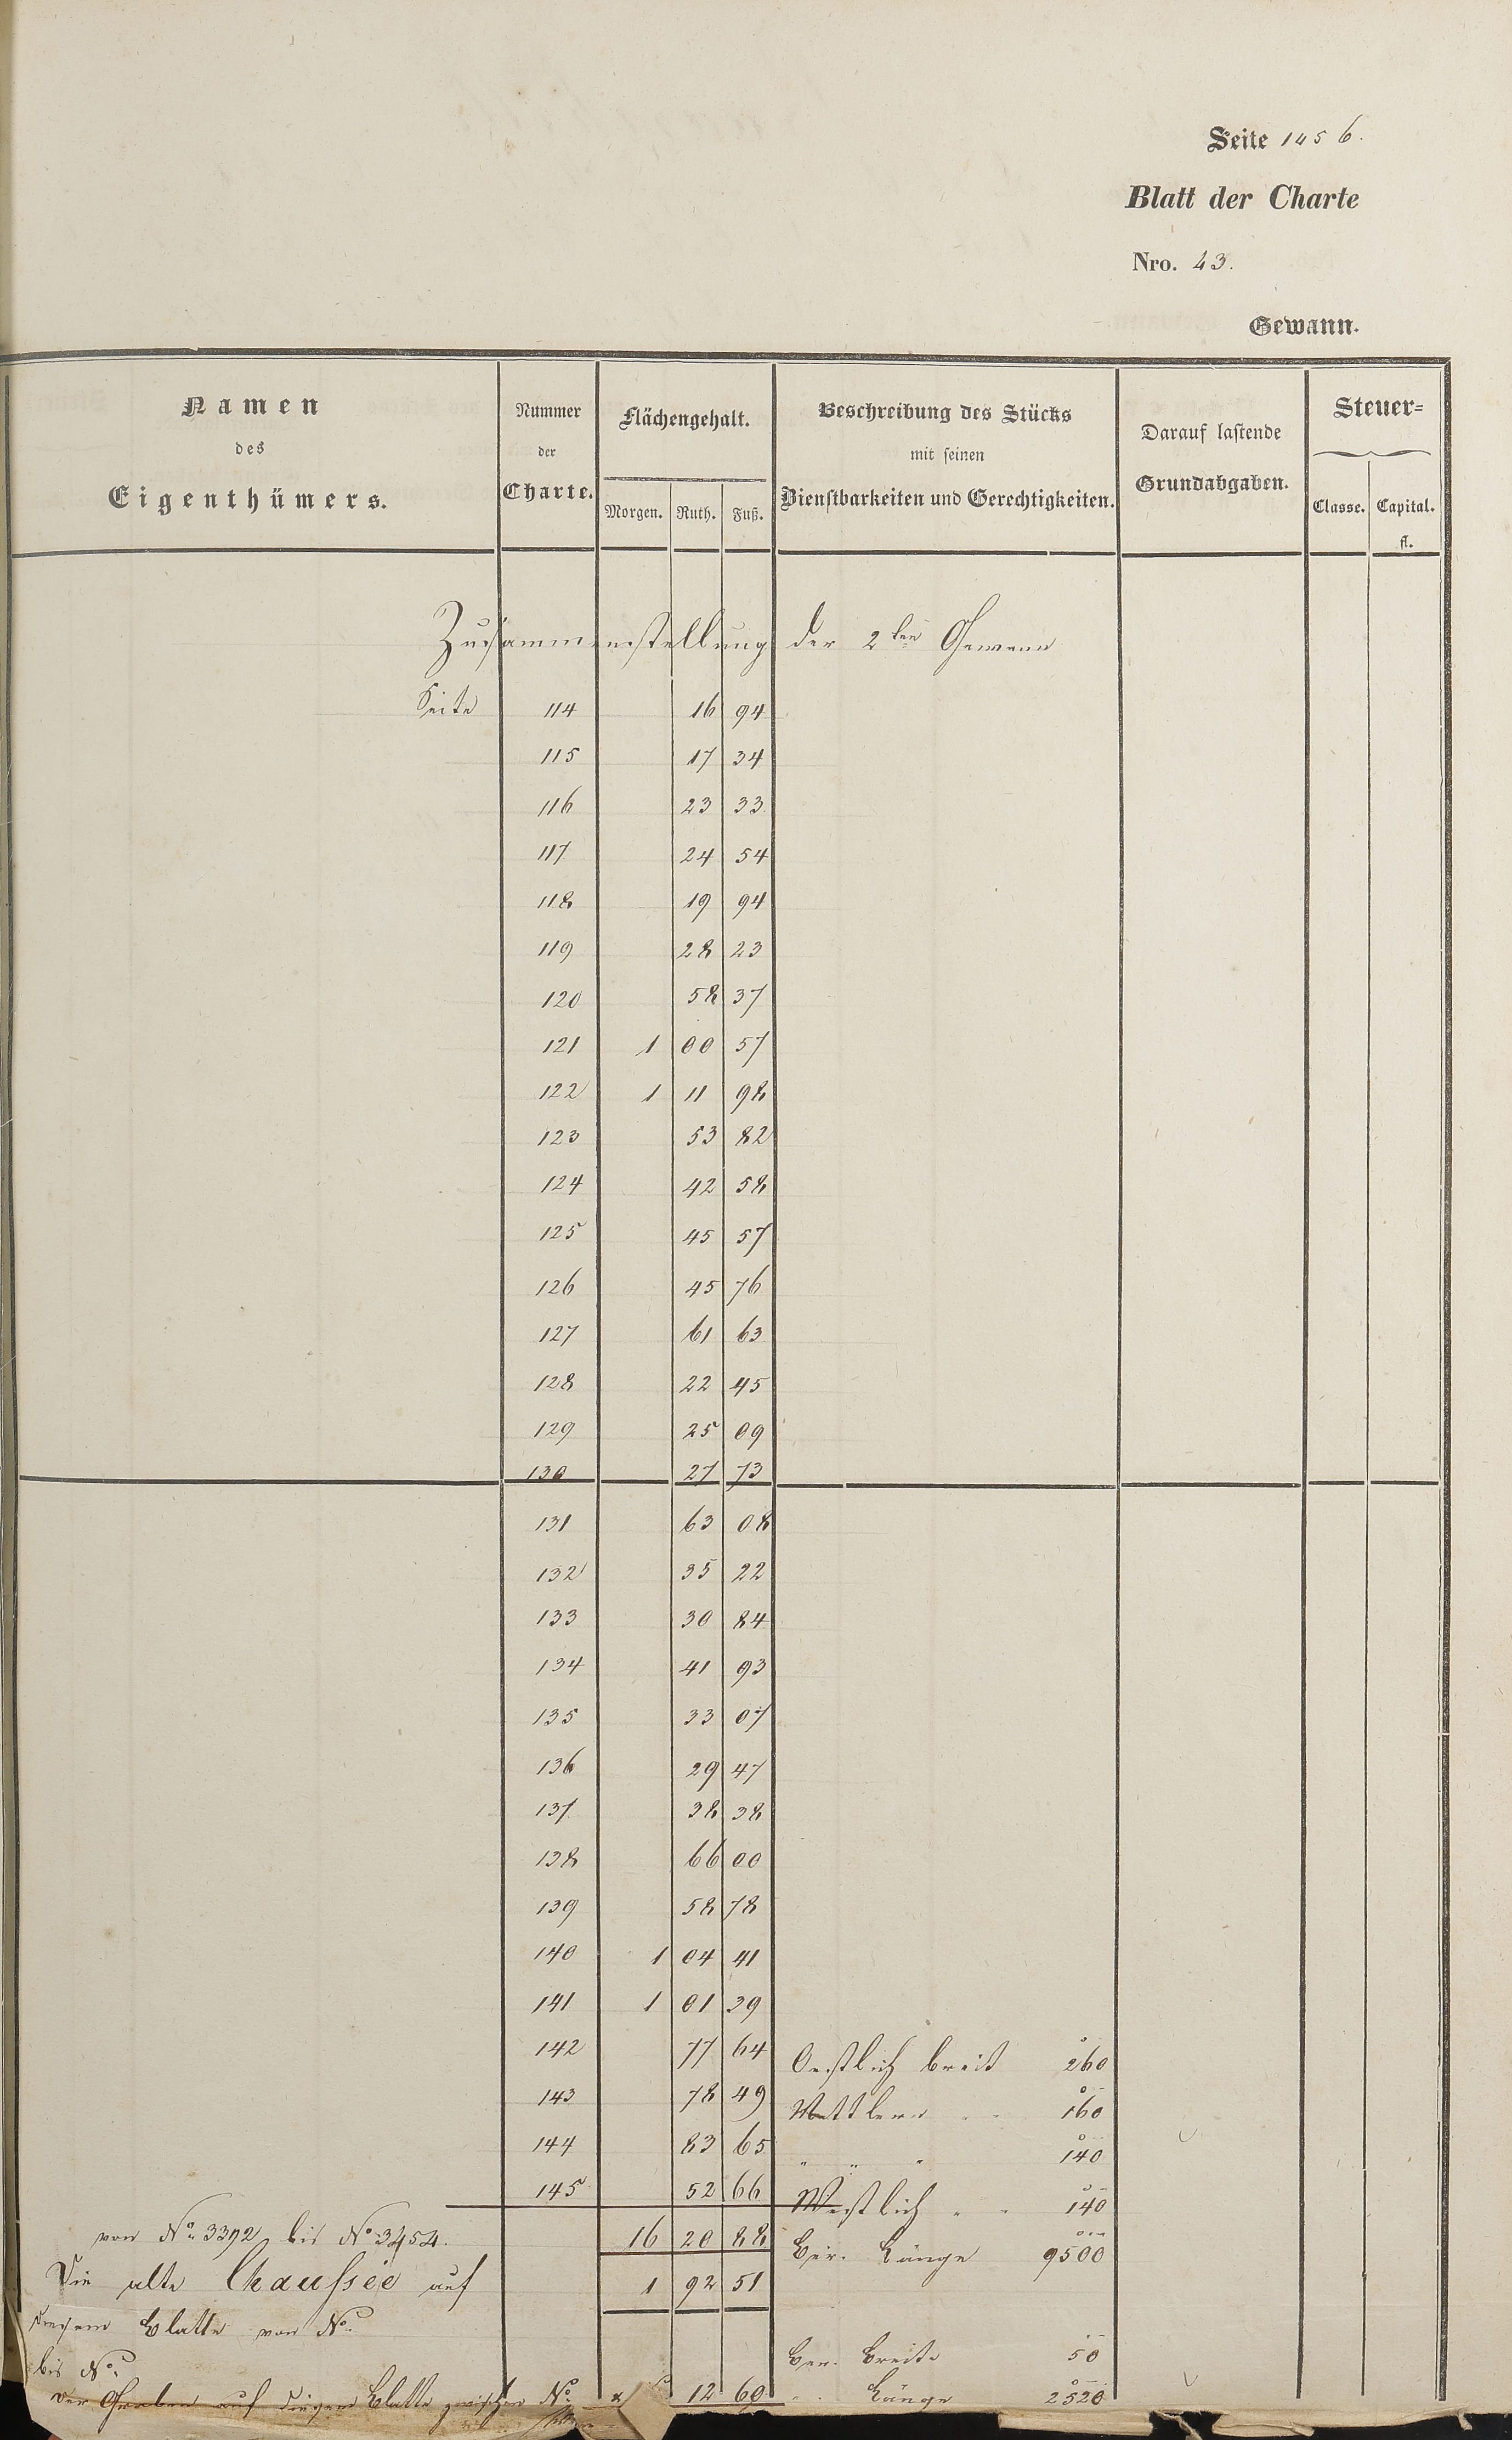 Seite 145 6.
Blatt der Charte
Nro. 43.
Gewann.
Namen
des
Eigenthümers.
Nummer
der
Charte.
Flächengehalt.
Morgen. Ruth. Fuß.
Beschreibung des Stücks
mit seinen
Dienstbarkeiten und Gerechtigkeiten.
Darauf lastende
Grundabgaben.
Steuer=
Classe. Capital.
fl.
Zusammenstellung der 2ten Gewann
Seite 114 16 94
115 17 34
116 23 33
117 24 54
118 19 94
119 28 23
120 58 37
121 1 00 57
122 1 11 98
123 53 82
124 42 58
125 45 57
126 45 76
127 61 63
128 22 45
129 25 09
130 27 73
131 63 08
132 35 22
133 30 84
134 41 93
135 33 07
136 29 47
137 38 38
138 66 00
139 58 78
140 1 04 41
141 1 01 39
142 77 64 Oestlich breit 260
143 78 49 Mittlere " " 160
144 83 65 " " " 140
145 52 66 Westlich " " 140
von No. 3392 bis No. 3454. 16 20 88 Ber. Länge 9500
Die alte Chaussée auf 1 92 51
diesem Blatte von No.
bis No. Ber. Breite 50
Der Graben auf diesem Blatte zwischen No. 12 60 " Länge 2520